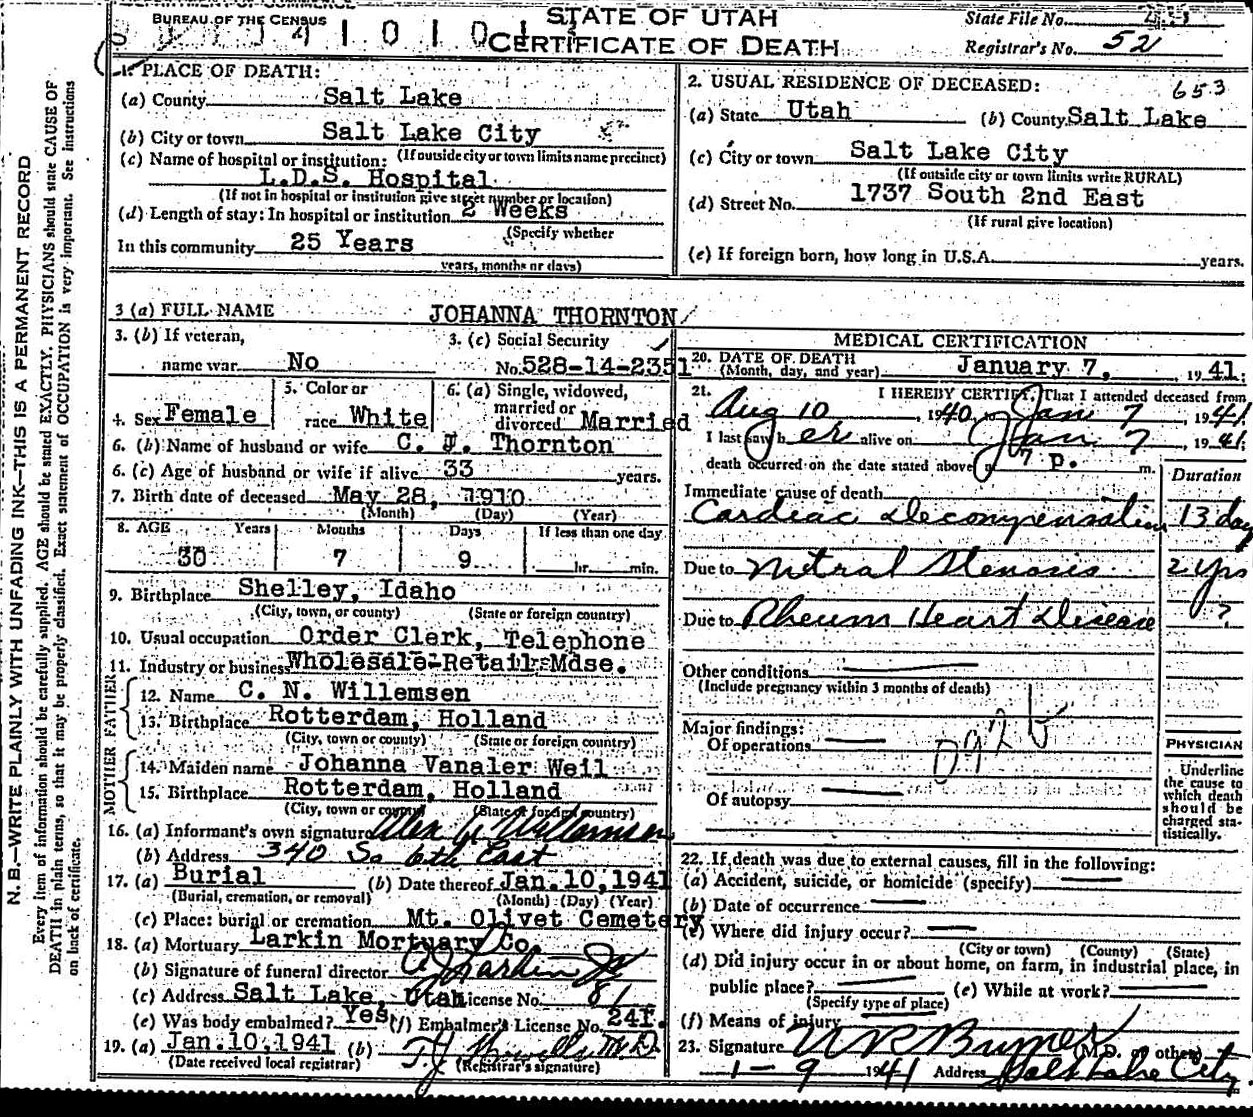 BUREAU OF THE CENSUS
STATE OF UTAH
CERTIFICATE OF DEATH
State File No.
Registrar's No. 52
N. B.—WRITE PLAINLY WITH UNFADING INK—THIS IS A PERMANENT RECORD
Every item of information should be carefully supplied. AGE should be stated EXACTLY. PHYSICIANS should state CAUSE OF
DEATH in plain terms, so that it may be properly classified. Exact statement of OCCUPATION is very important. See instructions
on back of certificate.
1. PLACE OF DEATH:
(a) County Salt Lake
(b) City or town Salt Lake City
(If outside city or town limits name precinct)
(c) Name of hospital or institution:
L.D.S. Hospital
(If not in hospital or institution give street number or location)
(d) Length of stay: In hospital or institution 2 Weeks
(Specify whether
In this community 25 Years
years, months or days)
2. USUAL RESIDENCE OF DECEASED: 653
(a) State Utah (b) County Salt Lake
(c) City or town Salt Lake City
(If outside city or town limits write RURAL)
(d) Street No. 1737 South 2nd East
(If rural give location)
(e) If foreign born, how long in U.S.A. years.
3 (a) FULL NAME JOHANNA THORNTON
3. (b) If veteran, name war No
3. (c) Social Security No. 528-14-2351
4. Sex Female
5. Color or race White
6. (a) Single, widowed, married or divorced Married
6. (b) Name of husband or wife C. J. Thornton
6. (c) Age of husband or wife if alive 33 years.
7. Birth date of deceased May 28, 1910
(Month) (Day) (Year)
8. AGE Years Months Days If less than one day
30 7 9 hr. min.
9. Birthplace Shelley, Idaho
(City, town, or county) (State or foreign country)
10. Usual occupation Order Clerk, Telephone
11. Industry or business Wholesale-Retail Mdse.
FATHER
12. Name C. N. Willemsen
13. Birthplace Rotterdam, Holland
(City, town or county) (State or foreign country)
MOTHER
14. Maiden name Johanna Vanaler Weil
15. Birthplace Rotterdam, Holland
(City, town or county) (State or foreign country)
16. (a) Informant's own signature
(b) Address 340 So 6th East
17. (a) Burial (b) Date thereof Jan. 10, 1941
(Burial, cremation, or removal) (Month) (Day) (Year)
(c) Place: burial or cremation Mt. Olivet Cemetery
18. (a) Mortuary Larkin Mortuary Co.
(b) Signature of funeral director A J Larkin Jr
(c) Address Salt Lake, Utah License No. 81
(e) Was body embalmed? Yes (f) Embalmer's License No. 241.
19. (a) Jan. 10, 1941 (b) T J Howells M D.
(Date received local registrar) (Registrar's signature)
MEDICAL CERTIFICATION
20. DATE OF DEATH January 7, 1941.
(Month, day, and year)
21. I HEREBY CERTIFY, That I attended deceased from
Aug 10, 1940, to Jan 7, 1941.
I last saw her alive on Jan 7, 1941.
death occurred on the date stated above 7 p. m.
Duration
Immediate cause of death
Cardiac Decompensation 13 day
Due to Mitral Stenosis 2 yrs
Due to Rheum Heart Disease ?
Other conditions
(Include pregnancy within 3 months of death)
Major findings:
Of operations
Of autopsy
PHYSICIAN
Underline
the cause to
which death
should be
charged sta-
tistically.
22. If death was due to external causes, fill in the following:
(a) Accident, suicide, or homicide (specify)
(b) Date of occurrence
(c) Where did injury occur?
(City or town) (County) (State)
(d) Did injury occur in or about home, on farm, in industrial place, in
public place? (e) While at work?
(Specify type of place)
(f) Means of injury
23. Signature (M.D. or other)
1-9 1941 Address Salt Lake City.